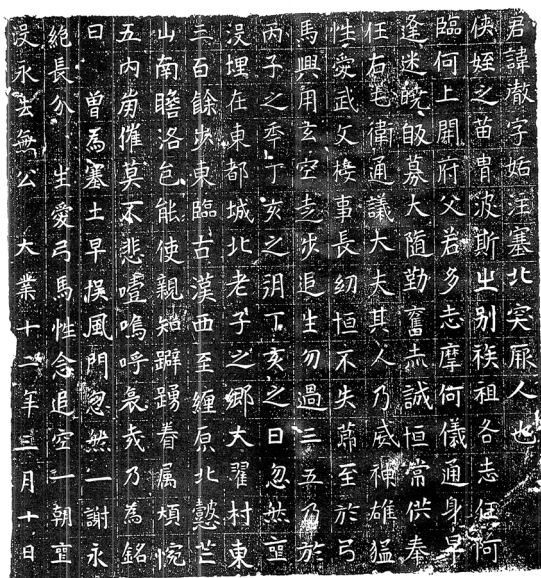 君諱徹字姡注塞北突厥人也
侠姪之苗胄波斯之別族祖各志任何
臨何上開府父若多志摩何儀通身早
逢迷皖昄募大隨勤奮赤誠恒常供奉
任右屯衛通議大夫其人乃威神雄猛
性愛武文接事長幼恒不失節至於弓
馬興用玄空走步追生勿過三五乃於
丙子之年丁亥之朔丁亥之日忽然壐
没埋在東都城北老子之鄉大翟村東
三百餘步東臨古漢西至纏原北懿芒
山南瞻洛邑能使親知躃踴眷属煩惋
五内崩摧莫不悲噎嗚呼哀哉乃為銘
曰 曾為塞土早揆風門忽然一謝永
絶長分 生愛弓馬性念追空一朝壐
没永去無公 大業十二年三月十日